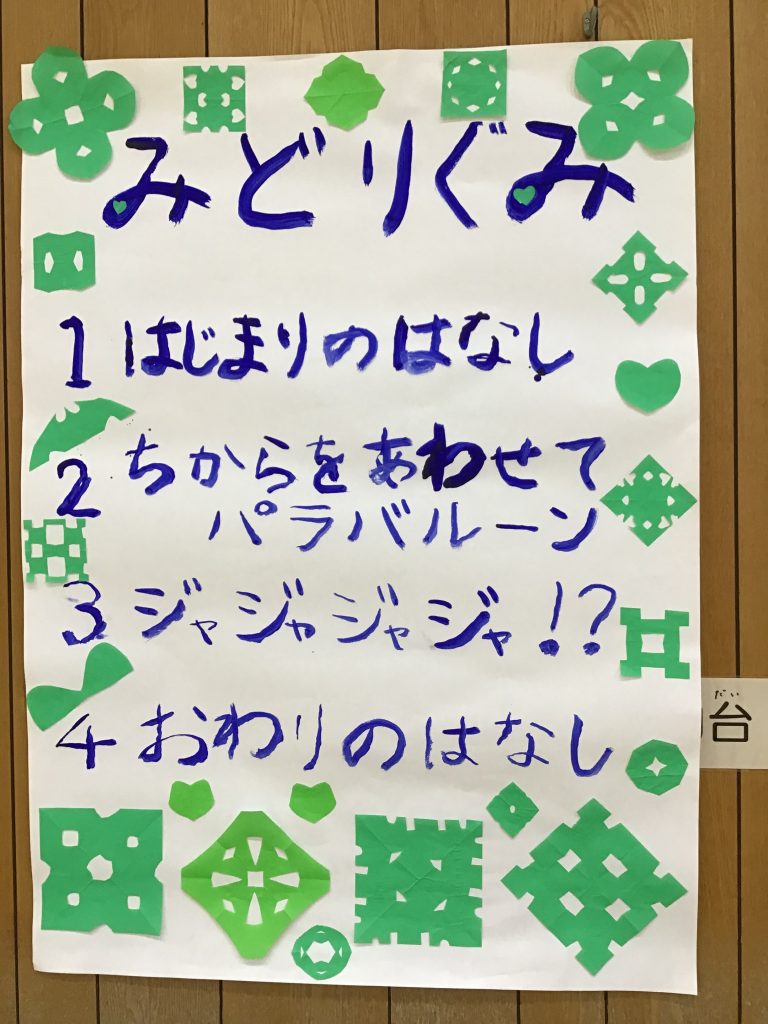 みどりぐみ
1 はじまりのはなし
2 ちからをあわせて
パラバルーン
3 ジャジャジャジャ!?
だい
台
4 おわりのはなし